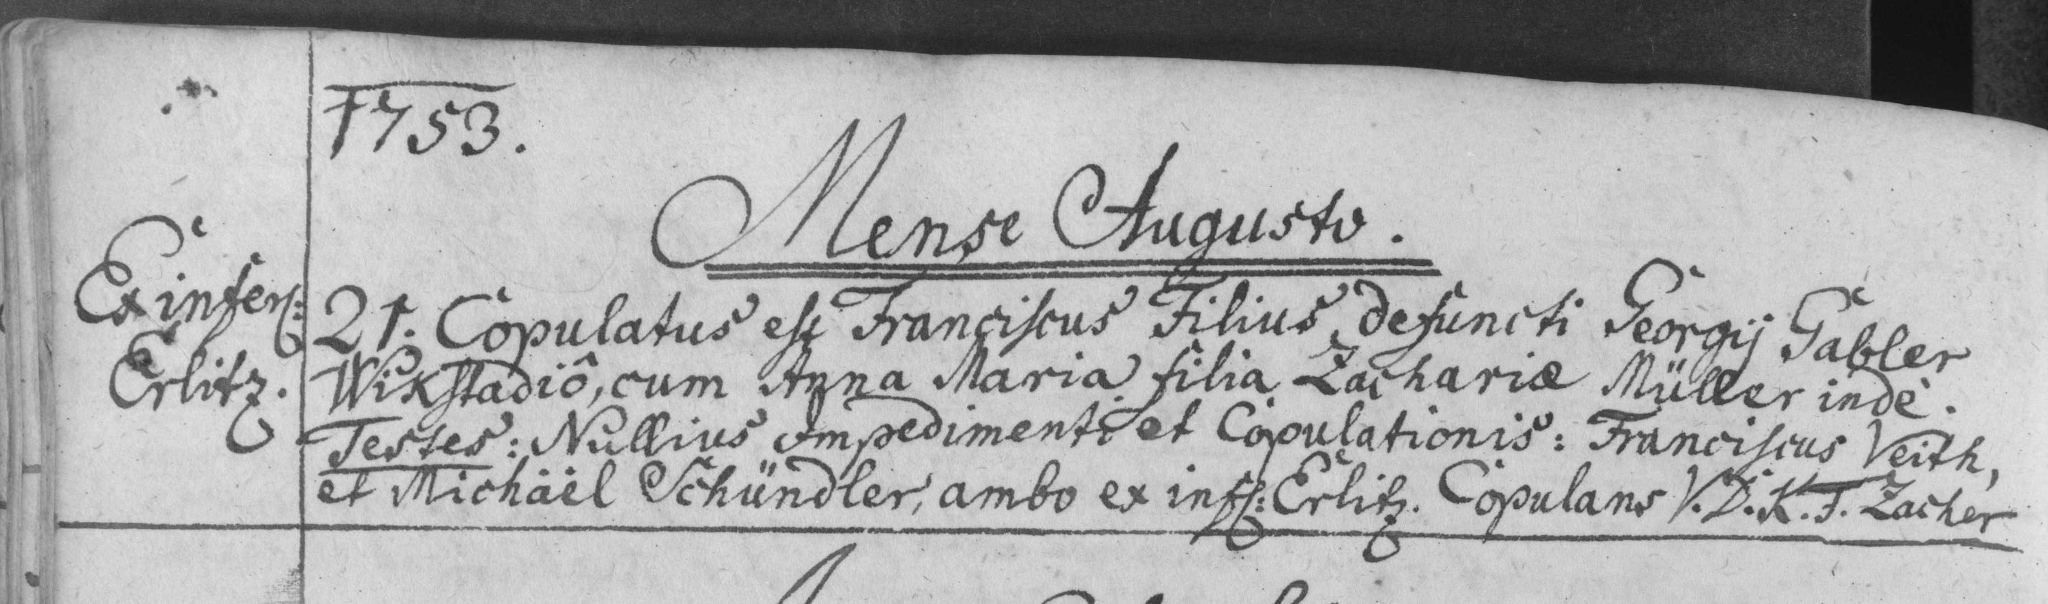 1753.
Mense Augusto.
Ex infer:
Erlitz.
21: Copulatus est Franciscus Filius defuncti Georgij Gabler
Wikstadiô, cum Anna Maria filia Zachariæ Müller indè.
Testes: Nullius impedimenti et Copulationis: Franciscus Veith,
et Michäel Schündler, ambo ex inf: Erlitz. Copulans V.D.K.F. Zacher